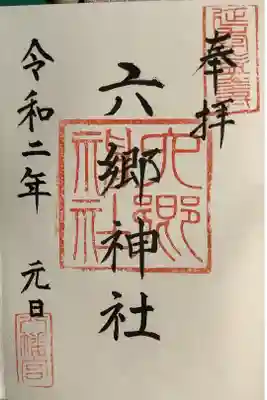 奉拝
六郷神社
令和二年 元日
六郷神社